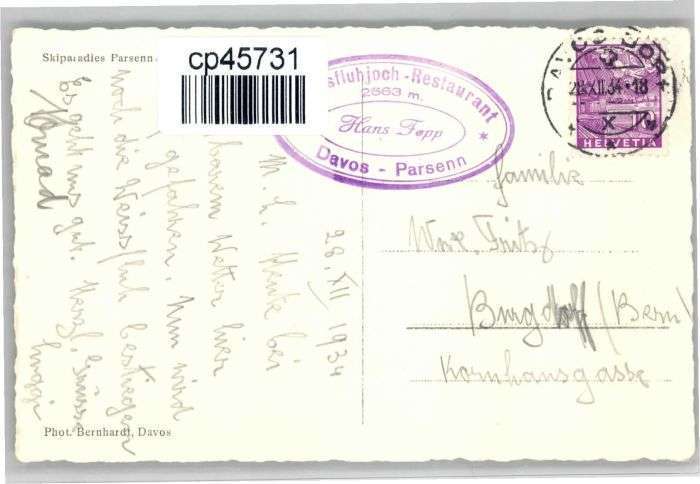 Skiparadies Parsenn
cp45731
sfluhjoch-Restaurant
2563 m.
Hans Fopp
Davos - Parsenn
28.XII.34-18
HELVETIA
28. XII 1934
M. L. Heute bei
Wetter hier
gefahren. Nun wird
noch die Weissfluh bestiegen
Es geht uns gut. Herzl. Grüsse
Familie
Fritz
Burgdorf (Bern)
Kornhausgasse
Phot. Bernhardt, Davos